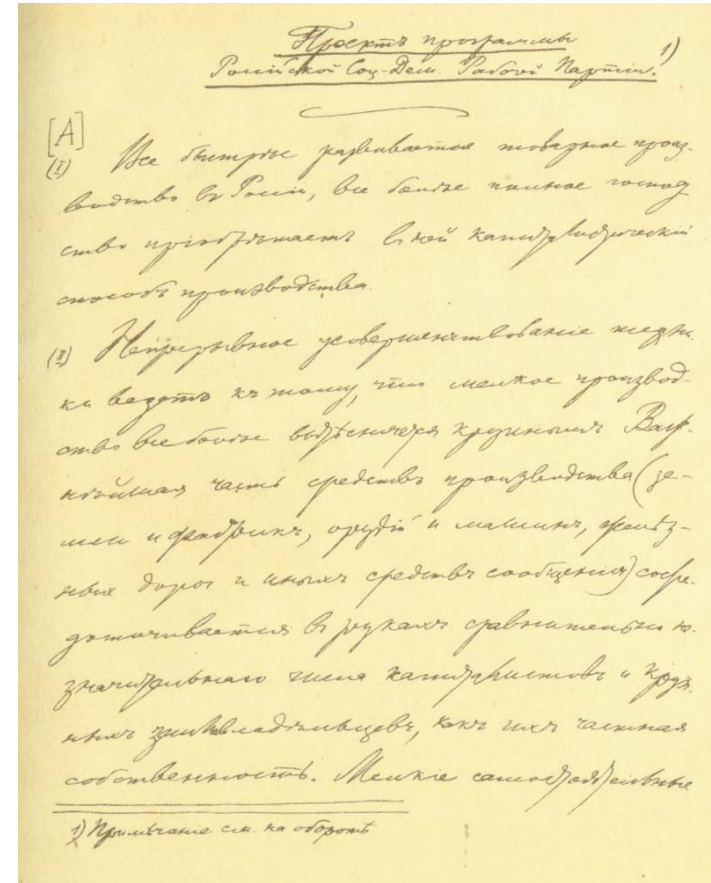 Проектъ программы
Россійской Соц-Дем. Рабочей Партіи. 1)
[A]
(I) Все быстрѣе развивается товарное произ-
водство въ Россіи, все болѣе полное господ
ство пріобрѣтаетъ въ ней капиталистическій
способъ производства.
(II) Непрерывное усовершенствованіе техни-
ки ведетъ къ тому, что мелкое производ-
ство все болѣе вытѣсняется крупнымъ. Важ-
нѣйшая часть средствъ производства (зе-
мли и фабрикъ, орудій и машинъ, желѣз-
ныхъ дорогъ и иныхъ средствъ сообщенія) сосре-
доточивается въ рукахъ сравнительно не-
значительнаго числа капиталистовъ и круп-
ныхъ землевладѣльцевъ, какъ ихъ частная
собственность. Мелкіе самостоятельные
1) Примѣчаніе см. на оборотѣ